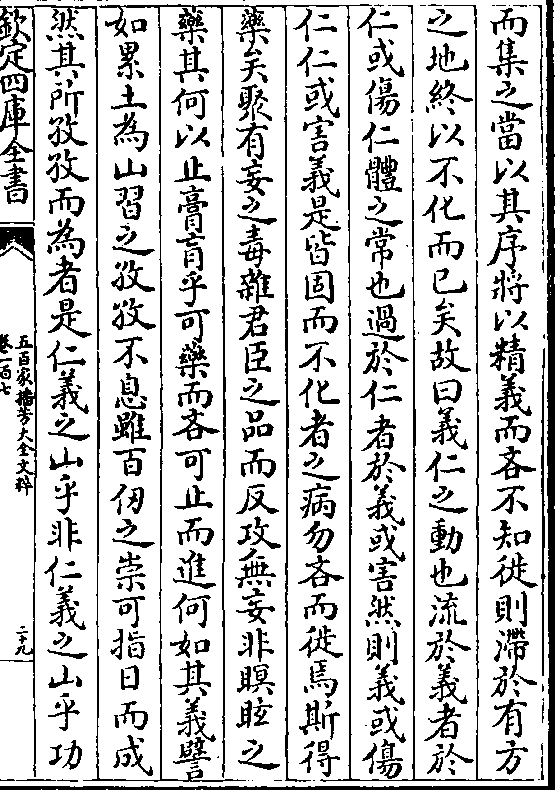 而集之當以其序將以精義而吝不知徙則滯於有方
之地終以不化而已矣故曰義仁之動也流於義者於
仁或傷仁體之常也過於仁者於義或害然則義或傷
仁仁或害義是皆固而不化者之病勿吝而徙焉斯得
藥矣聚有妄之毒雜君臣之品而反攻無妄非瞑眩之
藥其何以止膏肓乎可藥而吝可止而進何如其義譬
如累土為山習之孜孜不息雖百仞之崇可指日而成
然其所孜孜而為者是仁義之山乎非仁義之山乎功
欽定四庫全書
五百家播芳大全文粹
卷一百七
二十九